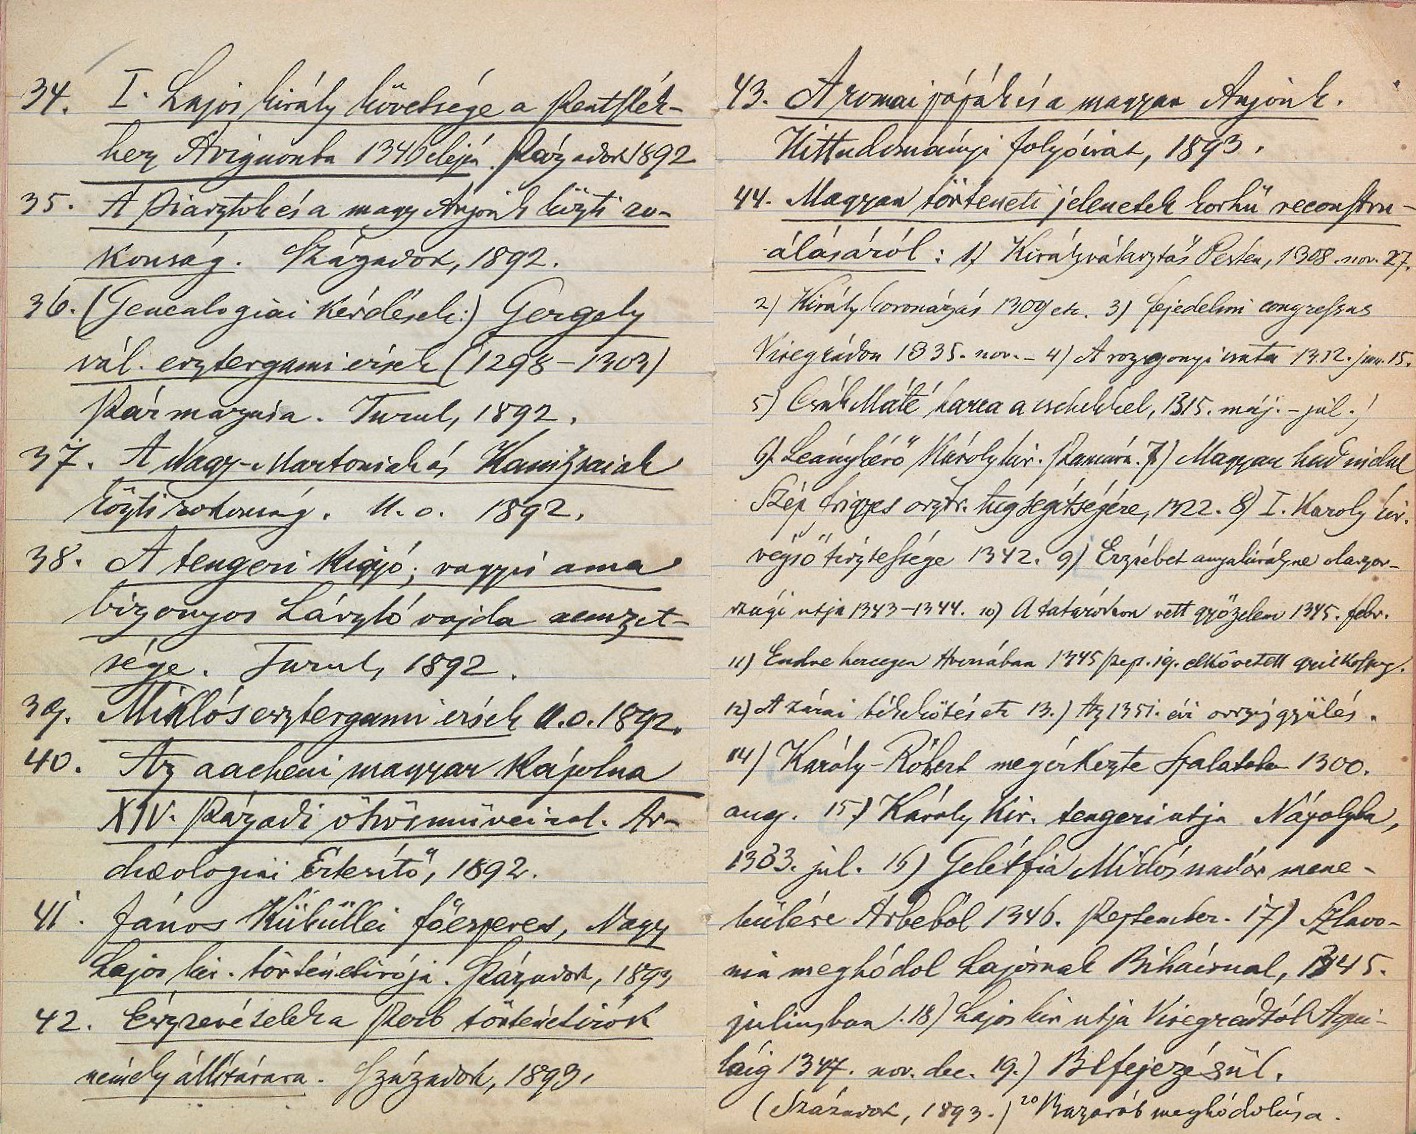 34. I. Lajos király követsége a szentszék-
hez Avignonba 1346 elején. Századok 1892
35. A Piasztok és a magy. Anjouk közti ro-
konság. Századok, 1892.
36. (Genealogiai kérdések:) Gergely
vál. esztergami érsek (1298–1303)
származása. Turul, 1892.
37. A Nagy-Martoniak és Kanizsaiak
közti rokonság. U. o. 1892.
38. A tengeri kigyó; vagyis ama
bizonyos László vajda nemzet-
sége. Turul, 1892.
39. Miklós esztergami érsek U. o. 1892.
40. Az aacheni magyar kápolna
XIV. századi ötvösműveiről. Ar-
chæologiai Értesítő, 1892.
41. János Küküllei főesperes, Nagy
Lajos kir. történetirója. Századok, 1893
42. Észrevételek a szerb történetirók
némely állitására. Századok, 1893.
43. A romai pápák és a magyar Anjouk.
Hittudományi folyóirat, 1893.
44. Magyar történeti jelenetek korhű reconstru-
álásáról: 1.) Királyválasztás Pesten, 1308. nov. 27.
2) Király koronázás 1309 etc. 3) fejedelmi congressus
Visegrádon 1335. nov. – 4) A rozgonyi csata 1312. jun. 15.
5) Csák Máté harca a csehekkel, 1315. máj. – jul.
6) Leánykérő Károly kir. számára. 7) Magyar had indul
Szép Frigyes osztr. hg segítségére, 1322. 8) I. Karoly kir.
végső tisztessége 1342. 9) Erzsébet anyakirályne olaszor-
szági utja 1343–1344. 10) A tatárokon vett győzelem 1345. febr.
11) Endre hercegen Aversában 1345 szept. 19. elkövetett gyilkosság.
12) A zárai békekötés etc 13.) Az 1351. évi országgyülés.
14) Károly-Róbert megérkezte Spalatoba 1300.
aug. 15) Károly kir. tengeri utja Nápolyba,
1333. jul. 16) Gelétfia Miklós nádor mene-
külése Arbeből 1346. szeptember. 17) Szlavo-
nia meghódol Lajosnak Bihácsnal, 1345.
juliusban. 18) Lajos kir utja Visegrádtól Aqui-
láig 1347. nov. dec. 19.) Befejezésül.
(Századok, 1893.) 20 Bazarád meghódolása.